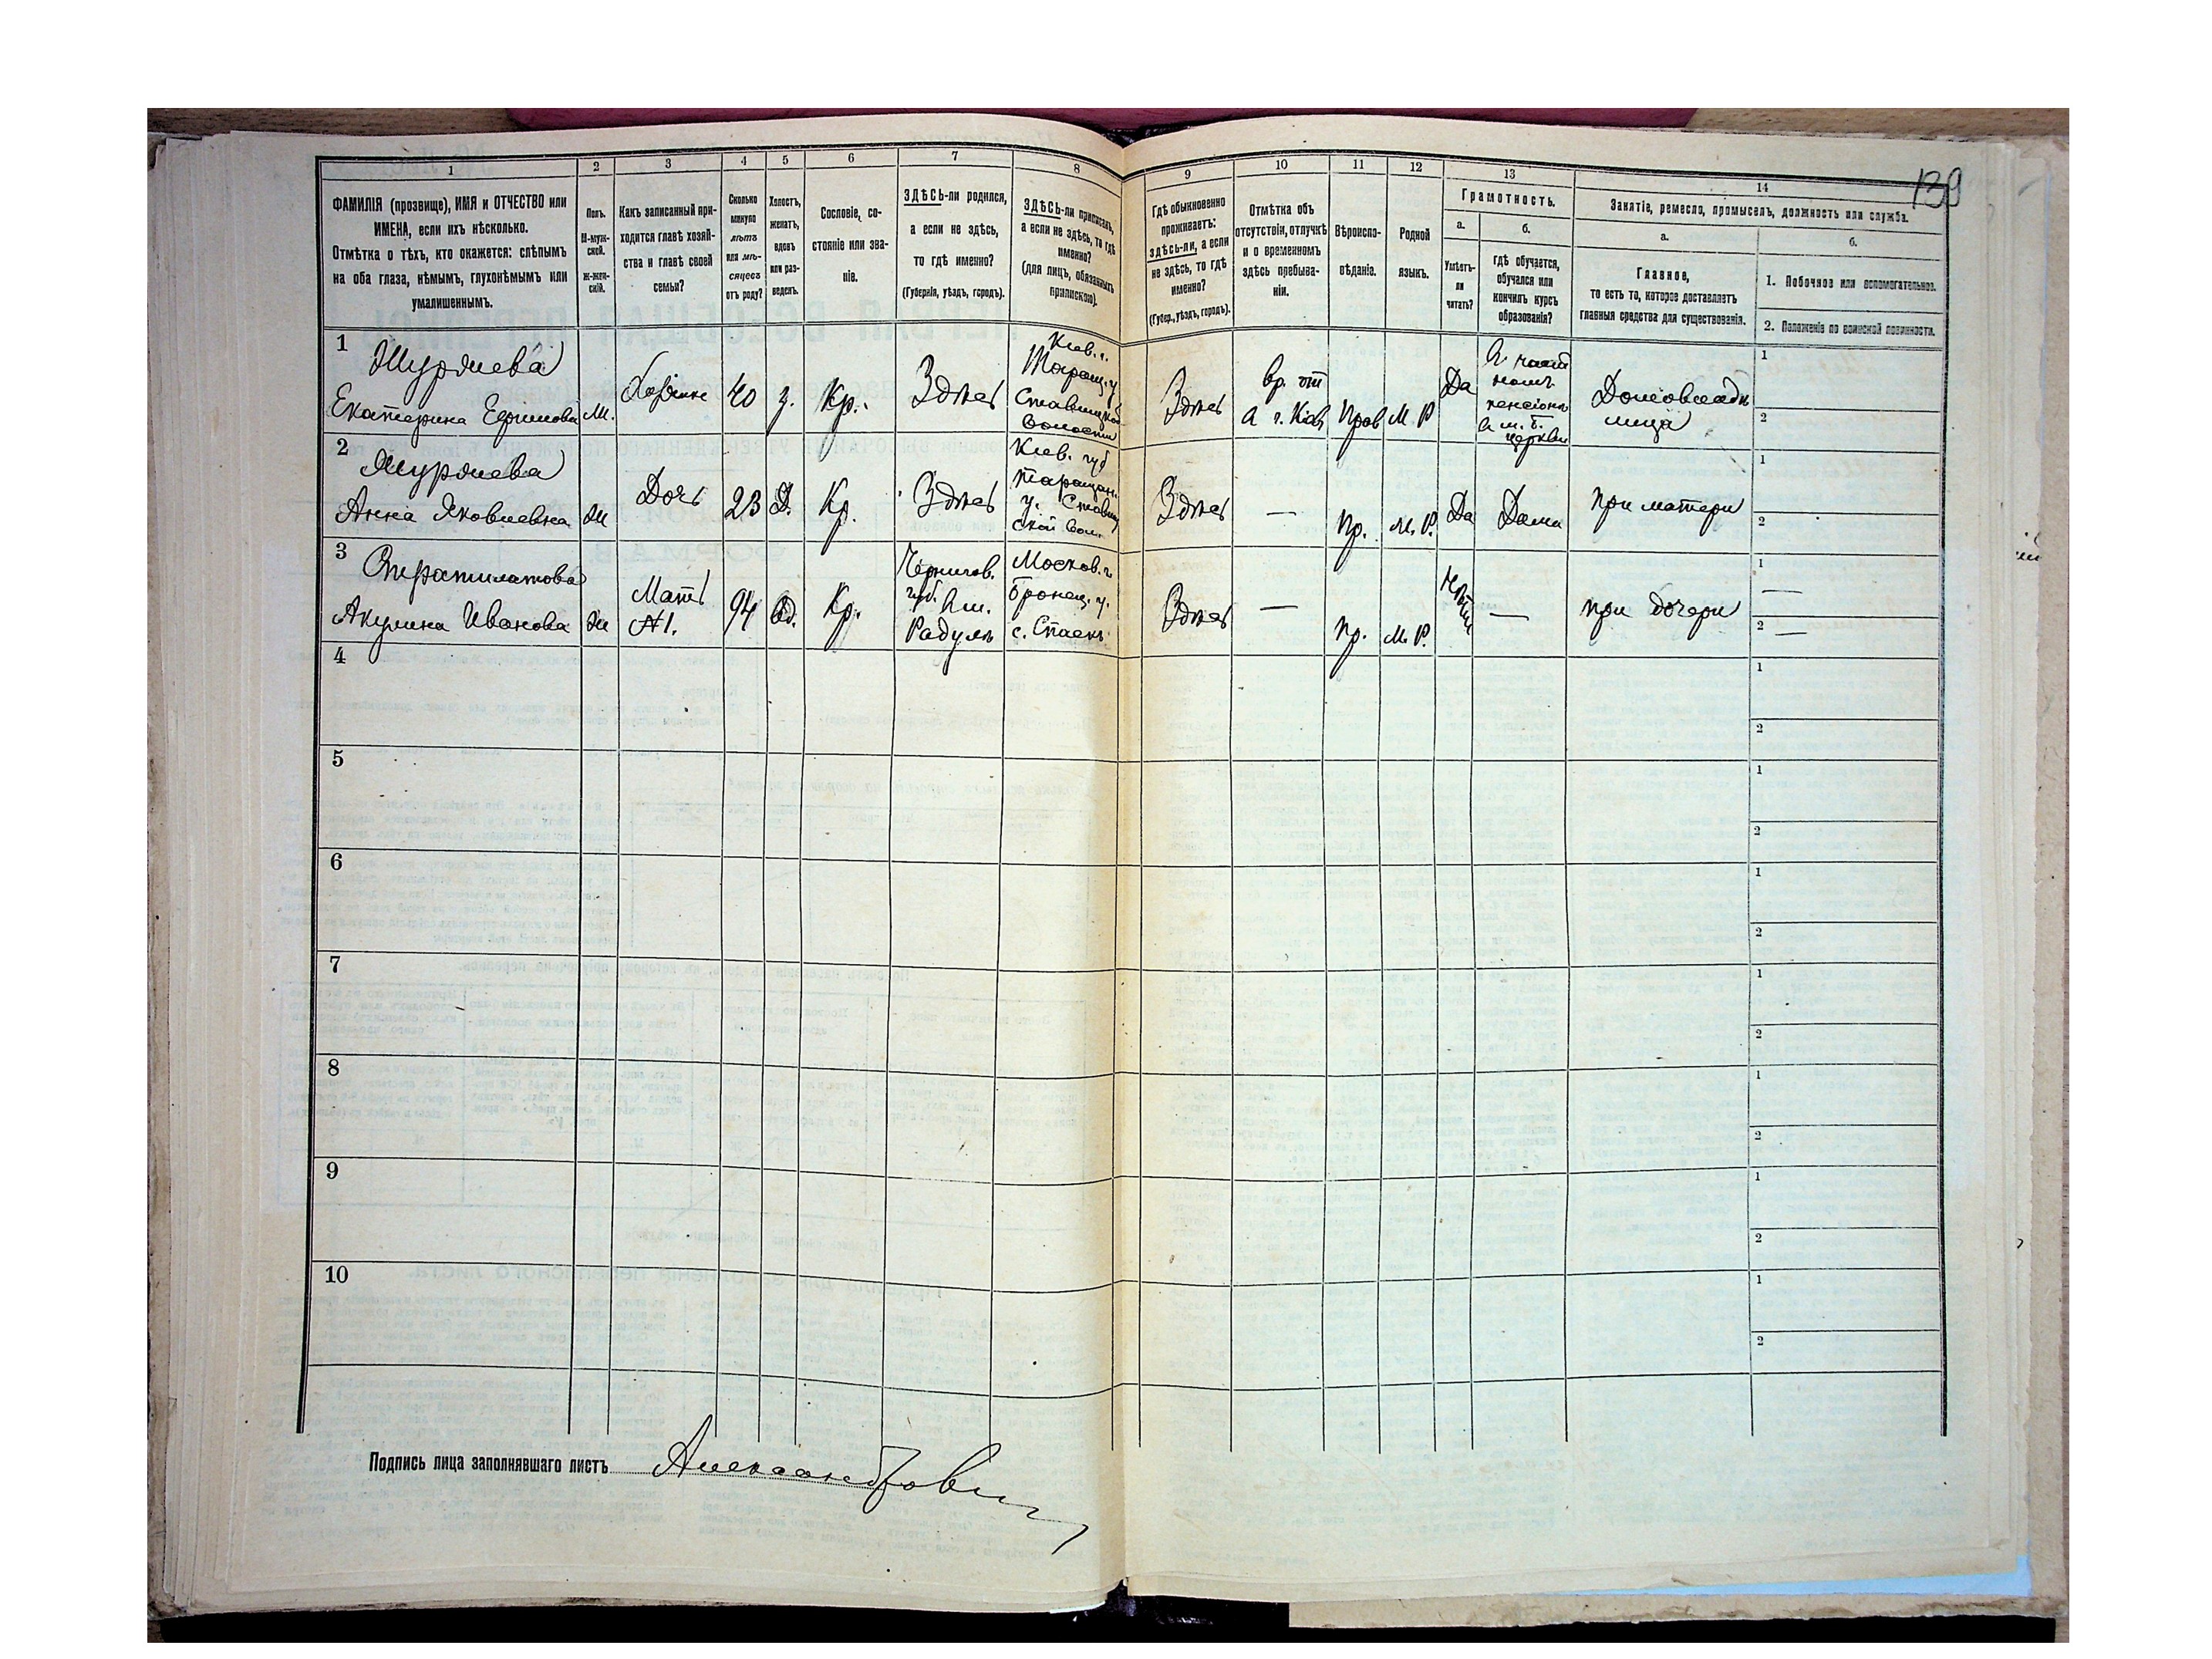 139
1
2
3
4
5
6
7
8
9
10
11
12
13
14
ФАМИЛІЯ (прозвище), ИМЯ и ОТЧЕСТВО или
ИМЕНА, если ихъ нѣсколько.
Отмѣтка о тѣхъ, кто окажется: слѣпымъ
на оба глаза, нѣмымъ, глухонѣмымъ или
умалишеннымъ.
Полъ.
М-муж-
ской.
ж-жен-
скій.
Какъ записанный при-
ходится главѣ хозяй-
ства и главѣ своей
семьи?
Сколько
минуло
лѣтъ
или мѣ-
сяцевъ
отъ роду?
Холостъ,
женатъ,
вдовъ
или раз-
веденъ.
Сословіе, со-
стояніе или зва-
ніе.
ЗДѢСЬ-ли родился,
а если не здѣсь,
то гдѣ именно?
(Губернія, уѣздъ, городъ).
ЗДѢСЬ-ли приписанъ,
а если не здѣсь, то гдѣ
именно?
(для лицъ, обязанныхъ
припиской).
Гдѣ обыкновенно
проживаетъ:
здѣсь-ли, а если
не здѣсь, то гдѣ
именно?
(Губер., уѣздъ, городъ).
Отмѣтка объ
отсутствіи, отлучкѣ
и о временномъ
здѣсь пребыва-
ніи.
Вѣроиспо-
вѣданіе.
Родной
языкъ.
Грамотность.
а.
Умѣетъ-
ли
читать?
б.
гдѣ обучается,
обучался или
кончилъ курсъ
образованія?
Занятіе, ремесло, промыселъ, должность или служба.
а.
Главное,
то есть то, которое доставляетъ
главныя средства для существованія.
б.
1. Побочное или вспомогательное.
2. Положеніе по воинской повинности.
1
Екатерина Ефимова
40
Кр.
Здѣсь
Кіев. г.
Таращ. у
волости
Здѣсь
вр. от
Прав
М. Р.
Да
пенсіонѣ
церкви
Домовладѣ
лица
1
2
2
Анна Яковлевна
Дочь
23
Д.
Кр.
Здѣсь
Кіев. губ
Таращан.
у. Ставищ
ской вол.
Здѣсь
—
Пр.
М. Р.
Да
Дома
при матери
1
2
3
Акулина Иванова
Мать
№1.
94
Вд.
Кр.
Чернигов.
губ.
Радуль
Москов. г.
Бронец. у.
с. Спаскъ
Здѣсь
—
Пр.
М. Р.
—
при дочери
1 —
2 —
4
1
2
5
1
2
6
1
2
7
1
2
8
1
2
9
1
2
10
1
2
Подпись лица заполнявшаго листъ Александрович